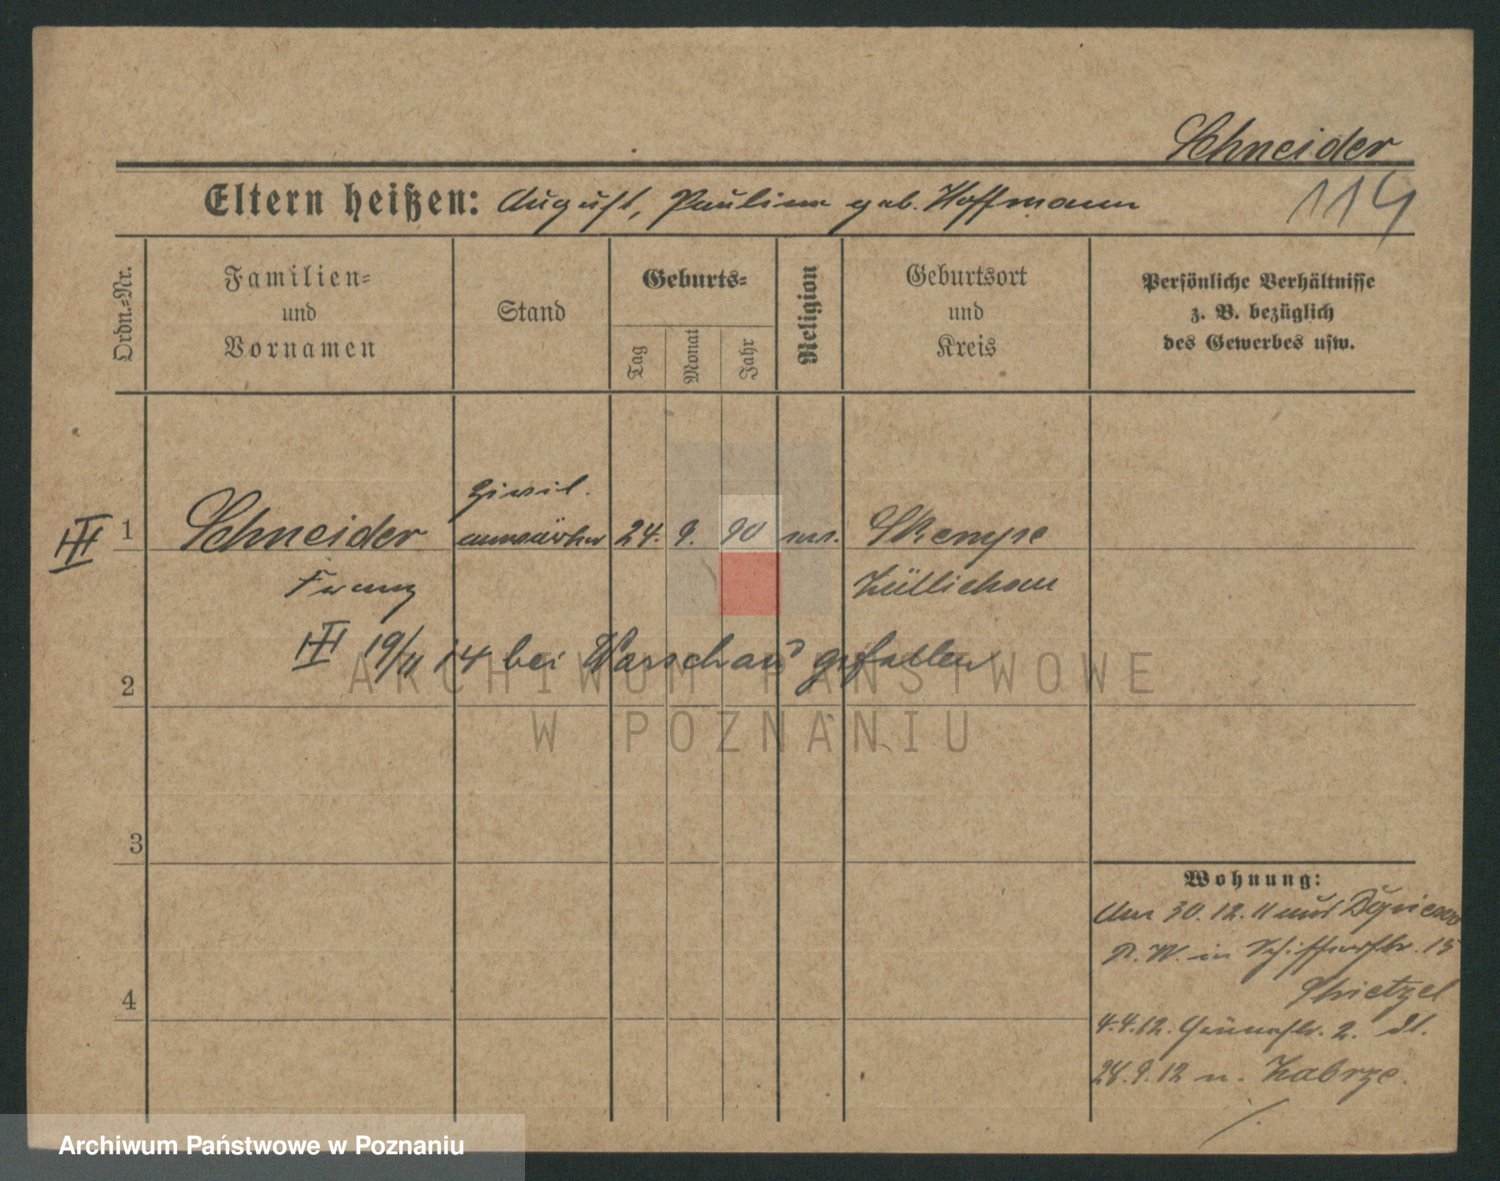 Schneider
Eltern heißen: August, Pauline geb. Hoffmann
114
Ordn.-Nr.
Familien-
und
Vornamen
Stand
Geburts-
Tag
Monat
Jahr
Religion
Geburtsort
und
Kreis
Persönliche Verhältnisse
z. B. bezüglich
des Gewerbes usw.
Zivil.
1 Schneider anwärter 24. 9. 90 Skempe
Franz Züllichau
19/11 14 bei Warschau gefallen
2
ARCHIWUM PAŃSTWOWE
W POZNANIU
3
Wohnung:
Am 30.12.11 aus
in 15
4
4.4.12. 2.
28.9.12 n. Zabrze.
Archiwum Państwowe w Poznaniu